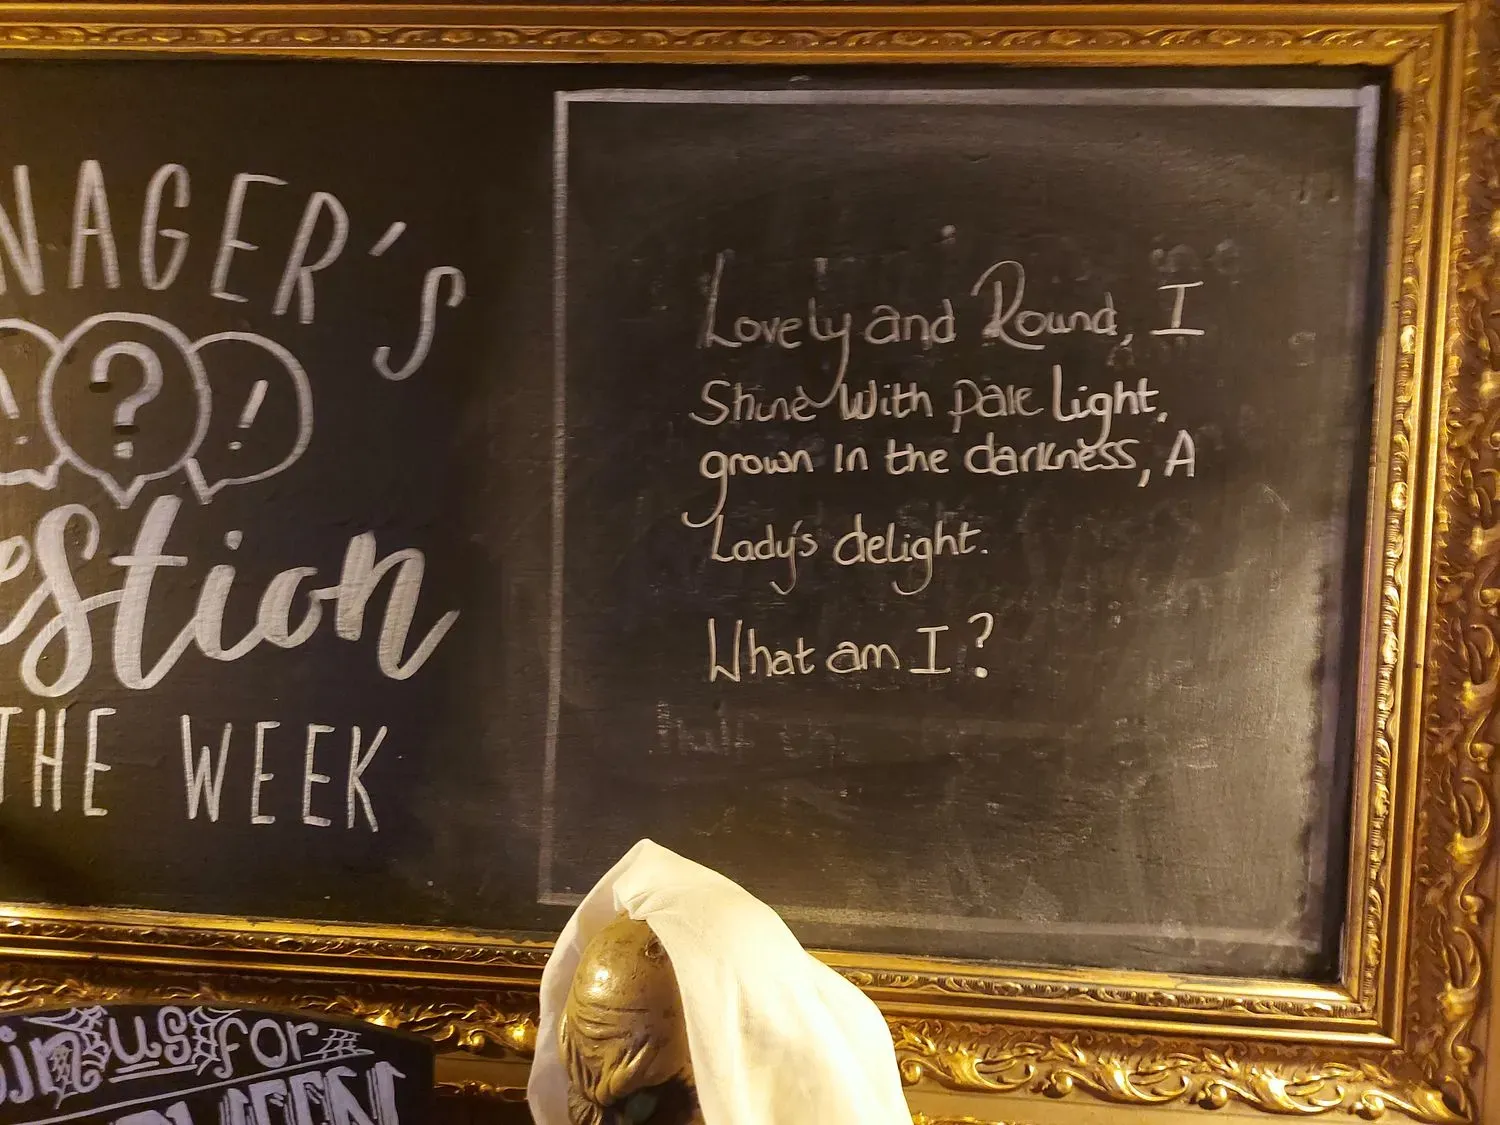 NAGER'S
estion
THE WEEK
Lovely and Round, I
Shine With pale Light,
grown in the darkness, A
Lady's delight.
What am I?
in us for